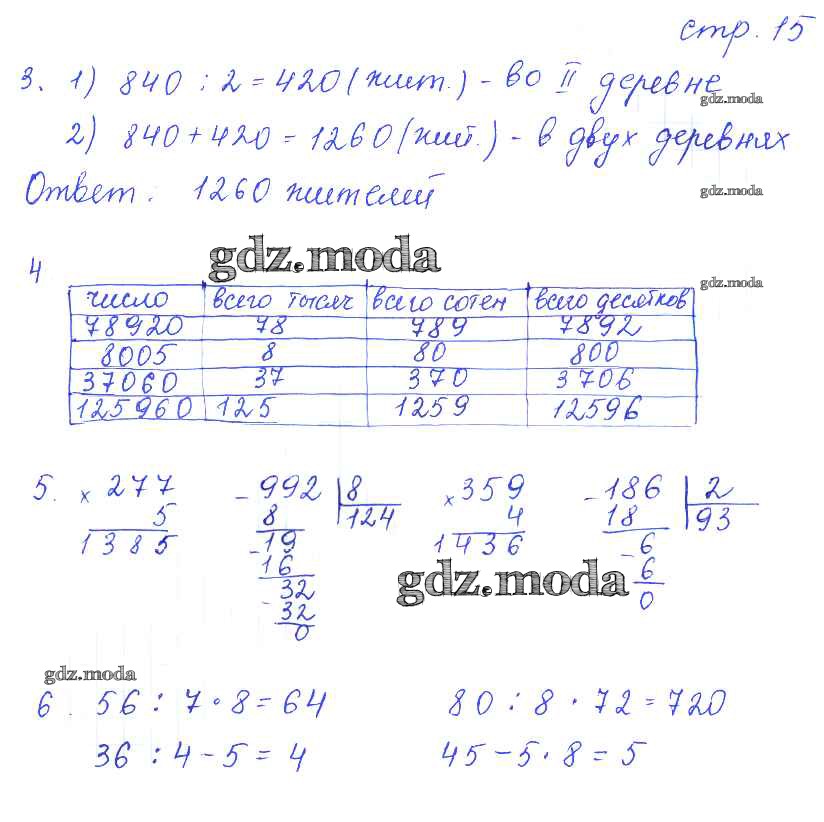 стр. 15
3. 1) 840 : 2 = 420 (жит.) - во II деревне
gdz.moda
2) 840 + 420 = 1260 (жит.) - в двух деревнях
Ответ: 1260 жителей
gdz.moda
gdz.moda
4
gdz.moda
число всего тысяч всего сотен всего десятков
78920 78 789 7892
8005 8 80 800
37060 37 370 3706
125960 125 1259 12596
5. × 277 - 992 | 8 × 359 - 186 | 2
5 8 124 4 18 93
1385 - 19 1436 - 6
16 6
32 0
- 32
0
gdz.moda
gdz.moda
6. 56 : 7 · 8 = 64 80 : 8 · 72 = 720
36 : 4 - 5 = 4 45 - 5 · 8 = 5